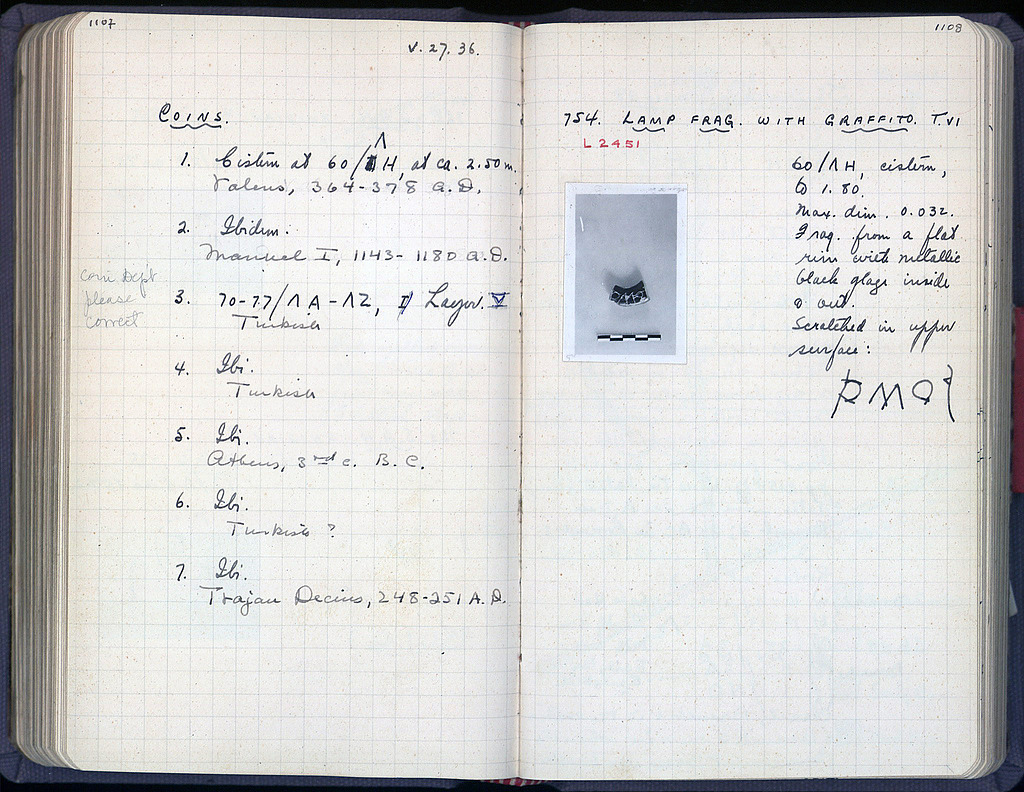 1107
V. 27. 36.
COINS.
1. Cistern at 60/ΛH, at ca. 2.50 m.
Valens, 364-378 A.D.
2. Ibidem.
Manuel I, 1143-1180 A.D.
Coin Dept
please
correct
3. 70-77/ΛA-ΛZ, Layer V
Turkish
4. Ibi.
Turkish
5. Ibi.
Athens, 3rd c. B.C.
6. Ibi.
Turkish ?
7. Ibi.
Trajan Decius, 248-251 A.D.
1108
754. LAMP FRAG. WITH GRAFFITO. T.VI
L 2451
60/ΛH, cistern,
to 1.80.
Max. dim. 0.032.
Frag. from a flat
rim with metallic
black glaze inside
& out.
Scratched in upper
surface: